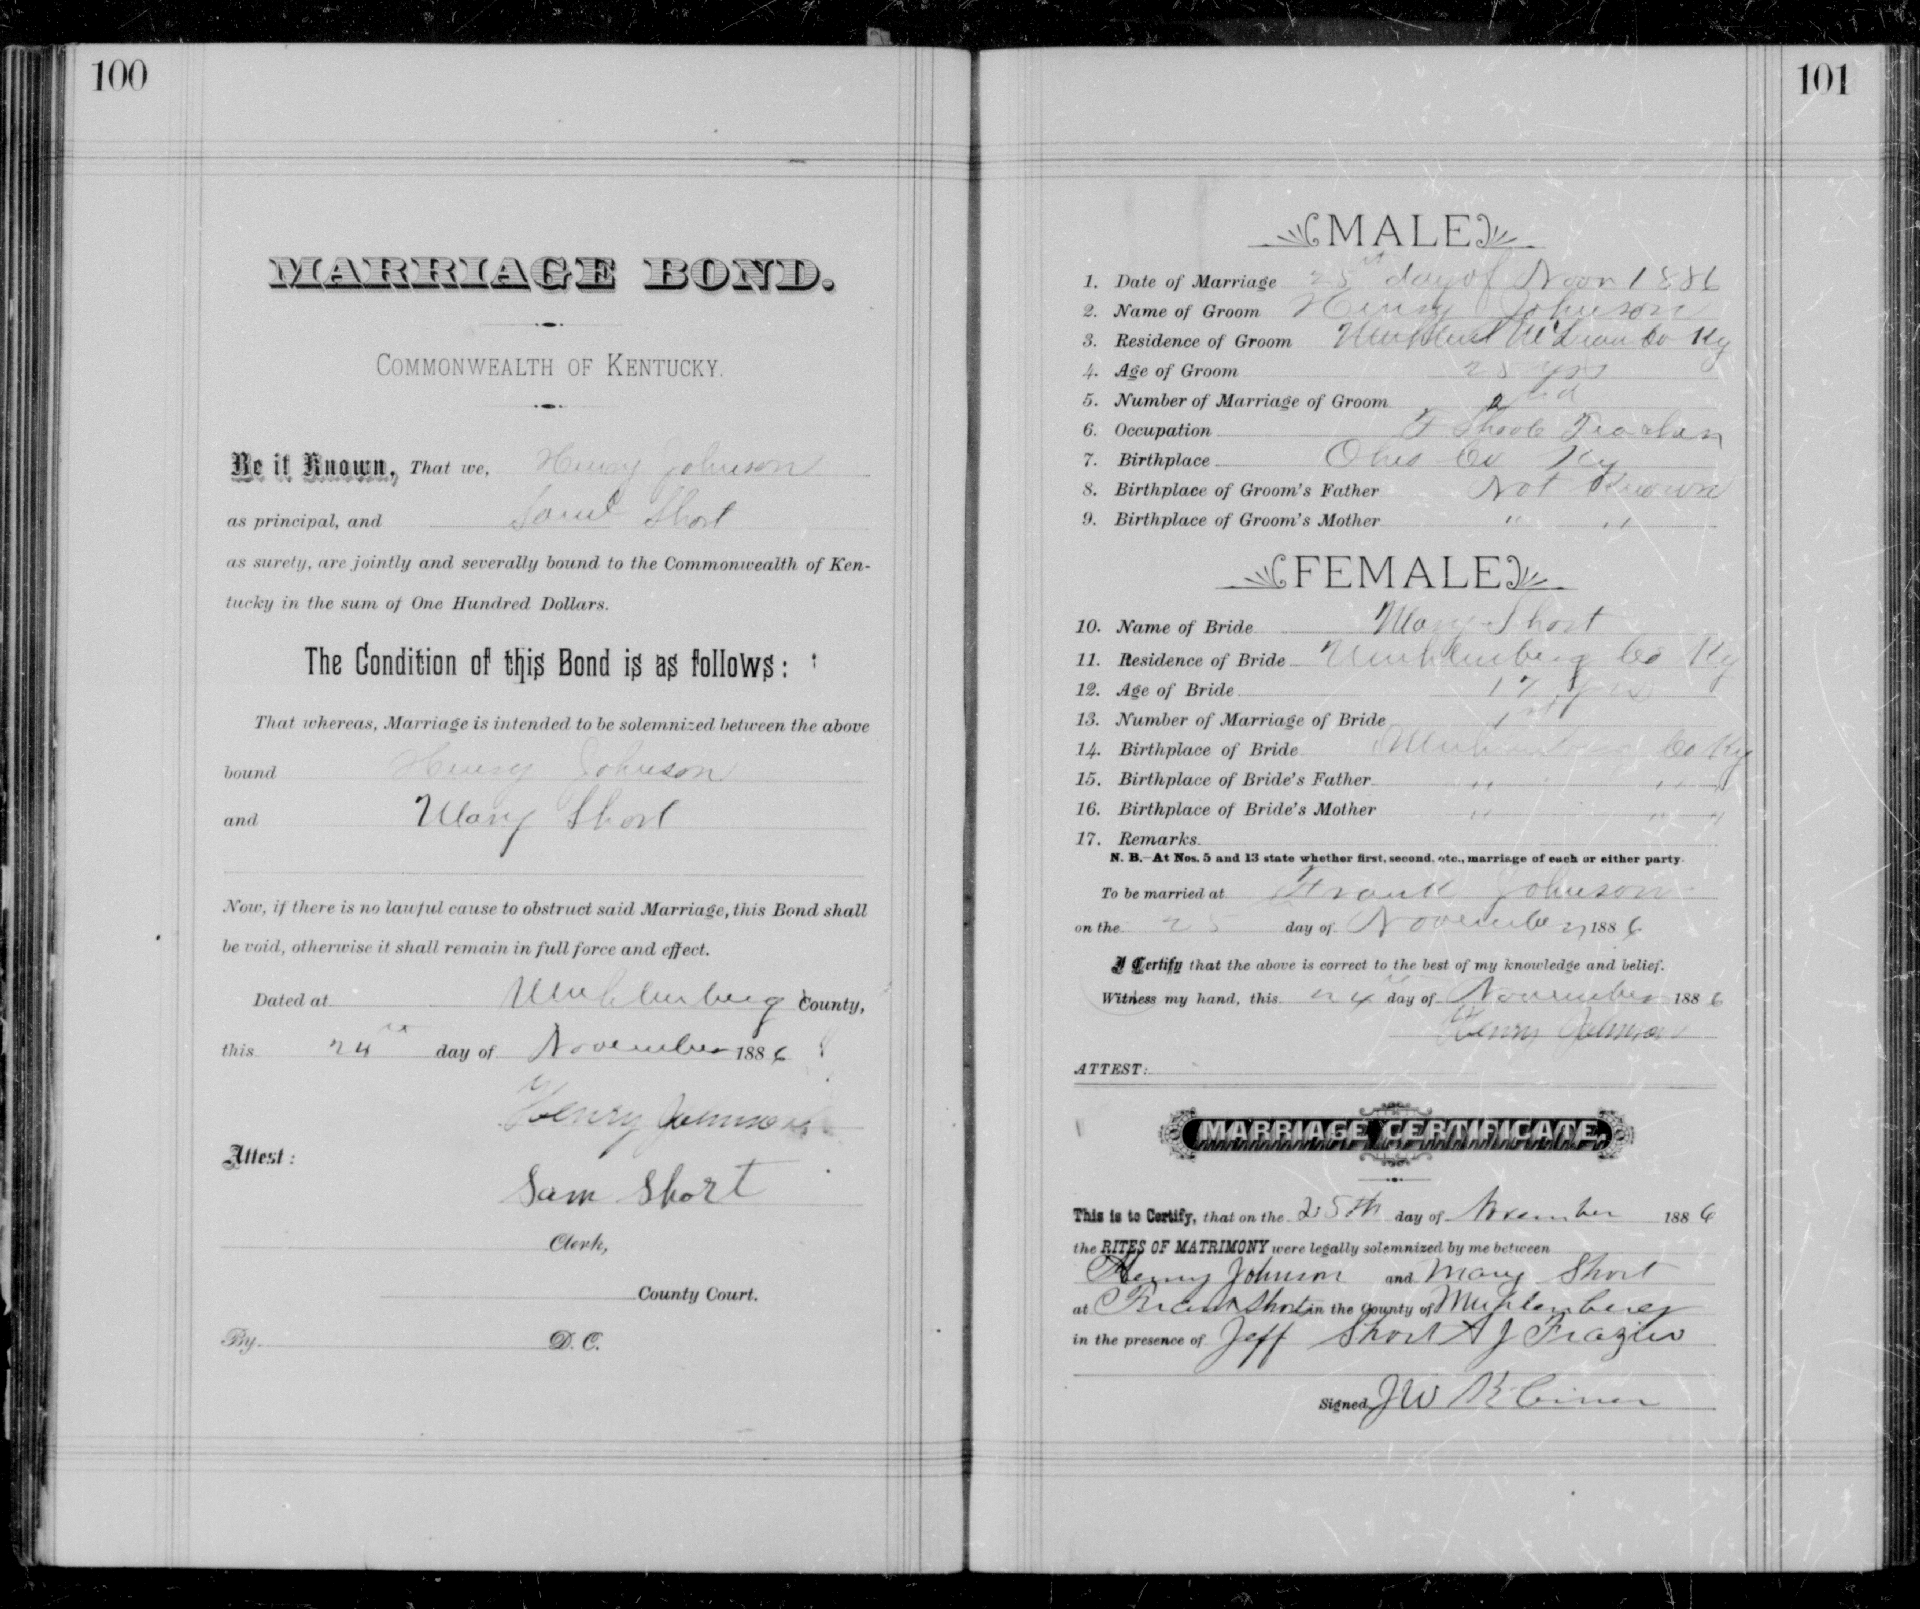 100
MARRIAGE BOND.
COMMONWEALTH OF KENTUCKY.
Be it Known, That we, Henry Johnson
as principal, and Saml Short
as surety, are jointly and severally bound to the Commonwealth of Ken-
tucky in the sum of One Hundred Dollars.
The Condition of this Bond is as follows:
That whereas, Marriage is intended to be solemnized between the above
bound Henry Johnson
and Mary Short
Now, if there is no lawful cause to obstruct said Marriage, this Bond shall
be void, otherwise it shall remain in full force and effect.
Dated at Muhlenberg County,
this 24 day of November 1886
Henry Johnson
Attest:
Sam Short
Clerk,
County Court.
By D. C.
101
MALE
1. Date of Marriage 25 day of 1886
2. Name of Groom Henry Johnson
3. Residence of Groom McLean Co Ky
4. Age of Groom 25 yrs
5. Number of Marriage of Groom 2nd
6. Occupation
7. Birthplace Ohio Co Ky
8. Birthplace of Groom's Father Not Known
9. Birthplace of Groom's Mother " "
FEMALE
10. Name of Bride Mary Short
11. Residence of Bride Muhlenberg Co Ky
12. Age of Bride 17 yrs
13. Number of Marriage of Bride 1st
14. Birthplace of Bride Muhlenberg Co Ky
15. Birthplace of Bride's Father " " "
16. Birthplace of Bride's Mother " " "
17. Remarks
N. B.—At Nos. 5 and 13 state whether first, second, etc., marriage of each or either party.
To be married at Frank Johnson
on the 25 day of November 1886
I Certify that the above is correct to the best of my knowledge and belief.
Witness my hand, this 24 day of November 1886
Henry Johnson
ATTEST:
MARRIAGE CERTIFICATE.
This is to Certify, that on the 25th day of November 1886
the RITES OF MATRIMONY were legally solemnized by me between
Henry Johnson and Mary Short
at Frank Short in the County of Muhlenberg
in the presence of Jeff Short A J Frazier
Signed J W